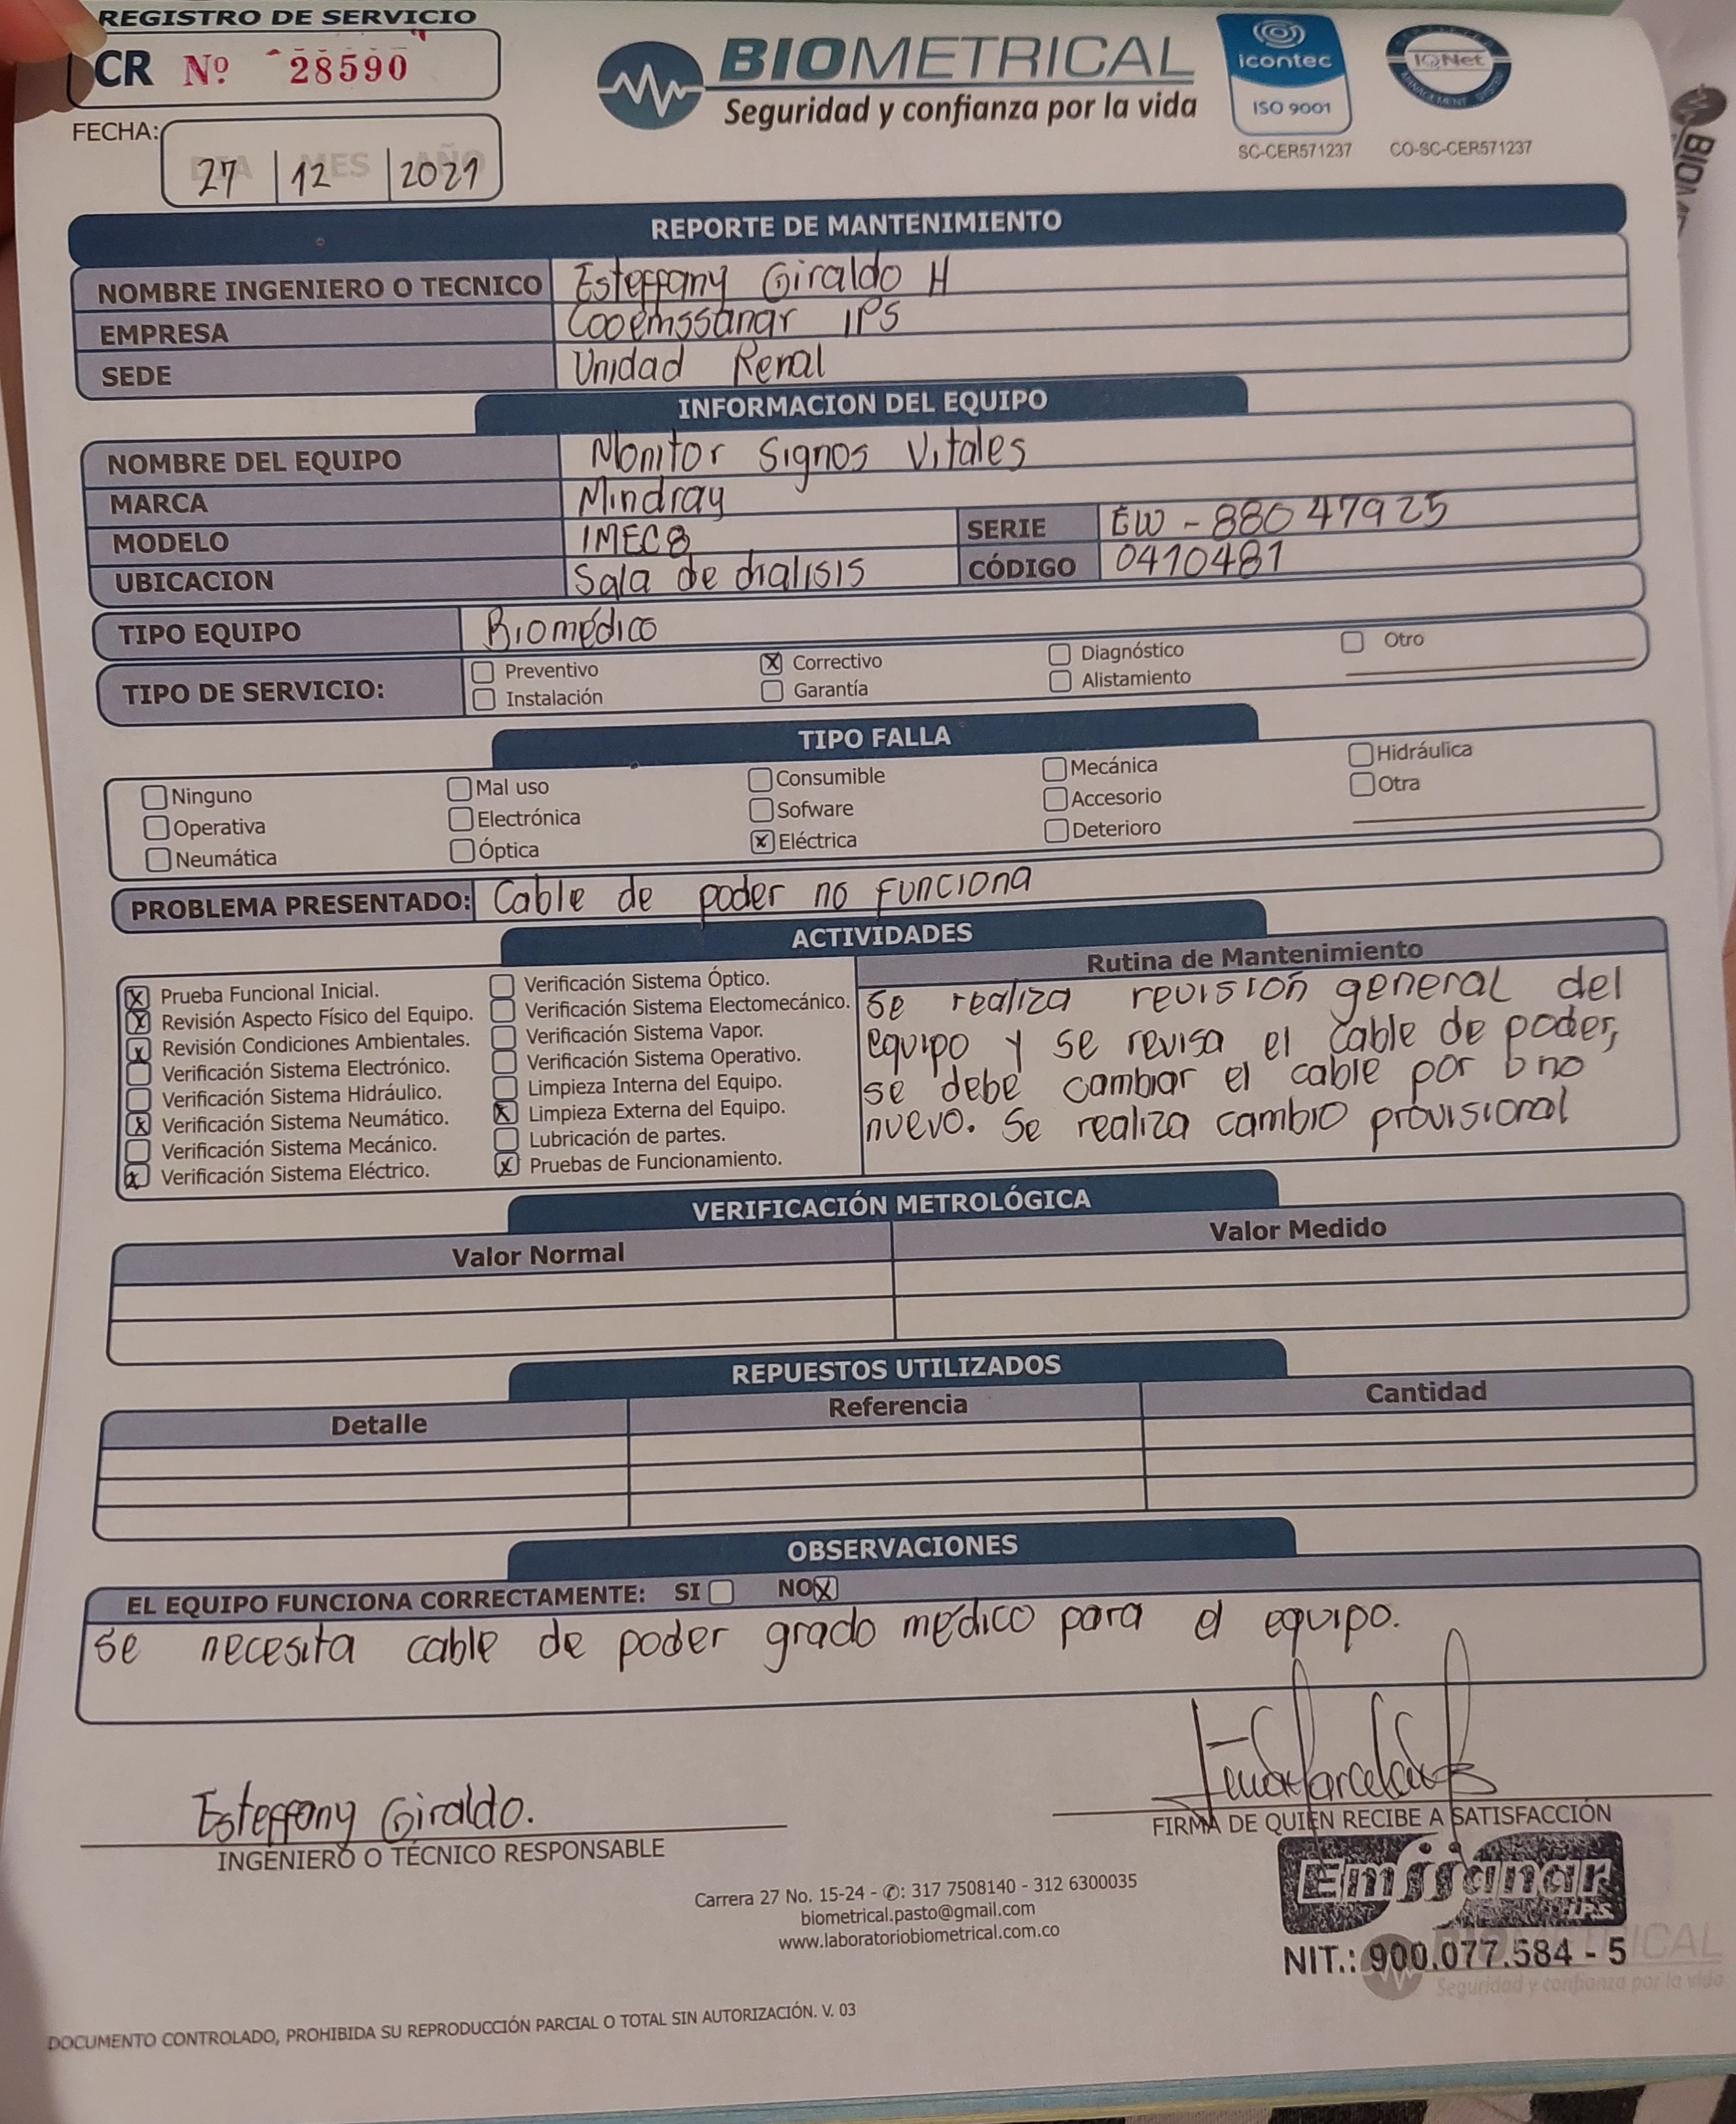 REGISTRO DE SERVICIO
CR Nº 28590
BIOMETRICAL
Seguridad y confianza por la vida
icontec
ISO 9001
SC-CER571237
IQNet
CO-SC-CER571237
FECHA: 27 | 12 | 2021
REPORTE DE MANTENIMIENTO
NOMBRE INGENIERO O TECNICO Esteffany Giraldo H
EMPRESA Cooemssanar IPS
SEDE Unidad Renal
INFORMACION DEL EQUIPO
NOMBRE DEL EQUIPO Monitor Signos Vitales
MARCA Mindray
MODELO IMEC8 SERIE EW - 88047925
UBICACION Sala de dialisis CÓDIGO 0410481
TIPO EQUIPO Biomédico
TIPO DE SERVICIO:
Preventivo X Correctivo Diagnóstico Otro
Instalación Garantía Alistamiento
TIPO FALLA
Ninguno Mal uso Consumible Mecánica Hidráulica
Operativa Electrónica Sofware Accesorio Otra
Neumática Óptica x Eléctrica Deterioro
PROBLEMA PRESENTADO: Cable de poder no funciona
ACTIVIDADES
X Prueba Funcional Inicial.
X Revisión Aspecto Físico del Equipo.
x Revisión Condiciones Ambientales.
Verificación Sistema Electrónico.
Verificación Sistema Hidráulico.
x Verificación Sistema Neumático.
Verificación Sistema Mecánico.
x Verificación Sistema Eléctrico.
Verificación Sistema Óptico.
Verificación Sistema Electomecánico.
Verificación Sistema Vapor.
Verificación Sistema Operativo.
Limpieza Interna del Equipo.
x Limpieza Externa del Equipo.
Lubricación de partes.
x Pruebas de Funcionamiento.
Rutina de Mantenimiento
Se realiza revisión general del
equipo y se revisa el cable de poder,
se debe cambiar el cable por uno
nuevo. Se realiza cambio provisional
VERIFICACIÓN METROLÓGICA
Valor Normal Valor Medido
REPUESTOS UTILIZADOS
Detalle Referencia Cantidad
OBSERVACIONES
EL EQUIPO FUNCIONA CORRECTAMENTE: SI NO X
Se necesita cable de poder grado médico para el equipo.
Esteffany Giraldo.
INGENIERO O TÉCNICO RESPONSABLE
FIRMA DE QUIEN RECIBE A SATISFACCIÓN
Emssanar
I.P.S
NIT.: 900.077.584 - 5
Carrera 27 No. 15-24 - ✆: 317 7508140 - 312 6300035
biometrical.pasto@gmail.com
www.laboratoriobiometrical.com.co
BIOMETRICAL
Seguridad y confianza por la vida
DOCUMENTO CONTROLADO, PROHIBIDA SU REPRODUCCIÓN PARCIAL O TOTAL SIN AUTORIZACIÓN. V. 03